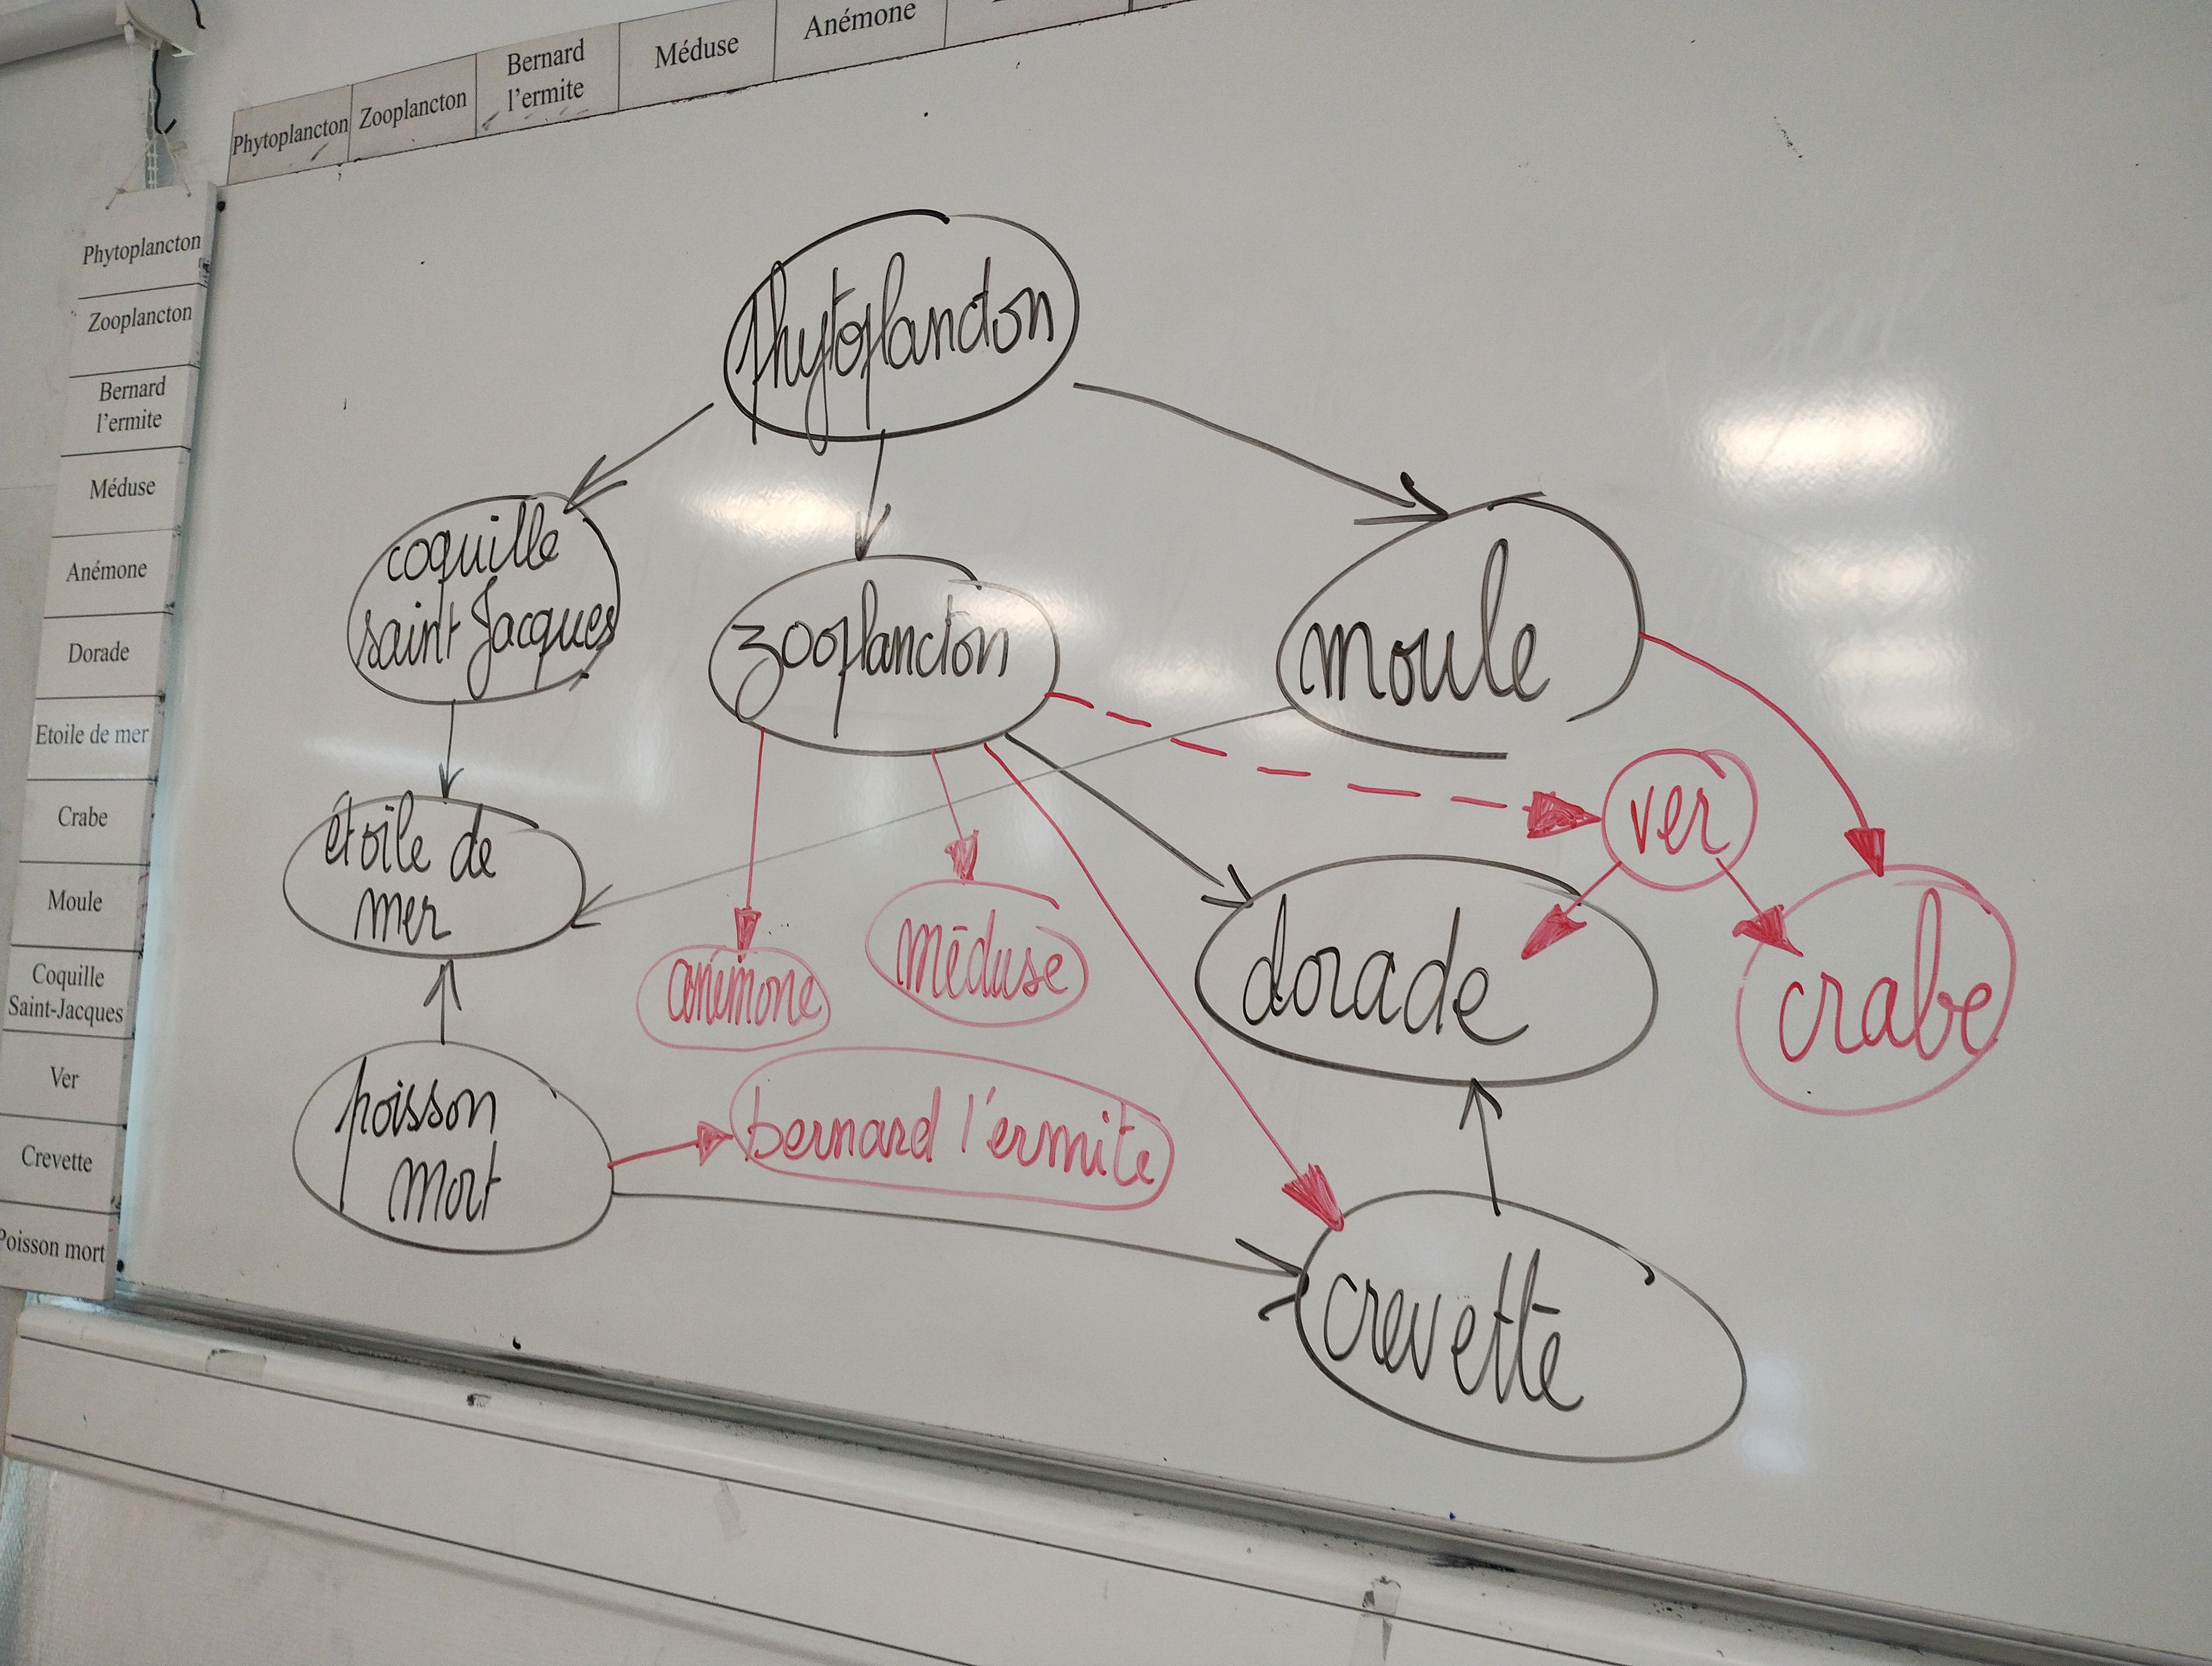 Phytoplancton
Zooplancton
Bernard
l'ermite
Méduse
Anémone
Phytoplancton
Zooplancton
Bernard
l'ermite
Méduse
Anémone
Dorade
Etoile de mer
Crabe
Moule
Coquille
Saint-Jacques
Ver
Crevette
Poisson mort
phytoplancton
coquille
saint Jacques
zooplancton
moule
ver
étoile de
mer
anémone
méduse
dorade
crabe
poisson
mort
bernard l'ermite
crevette